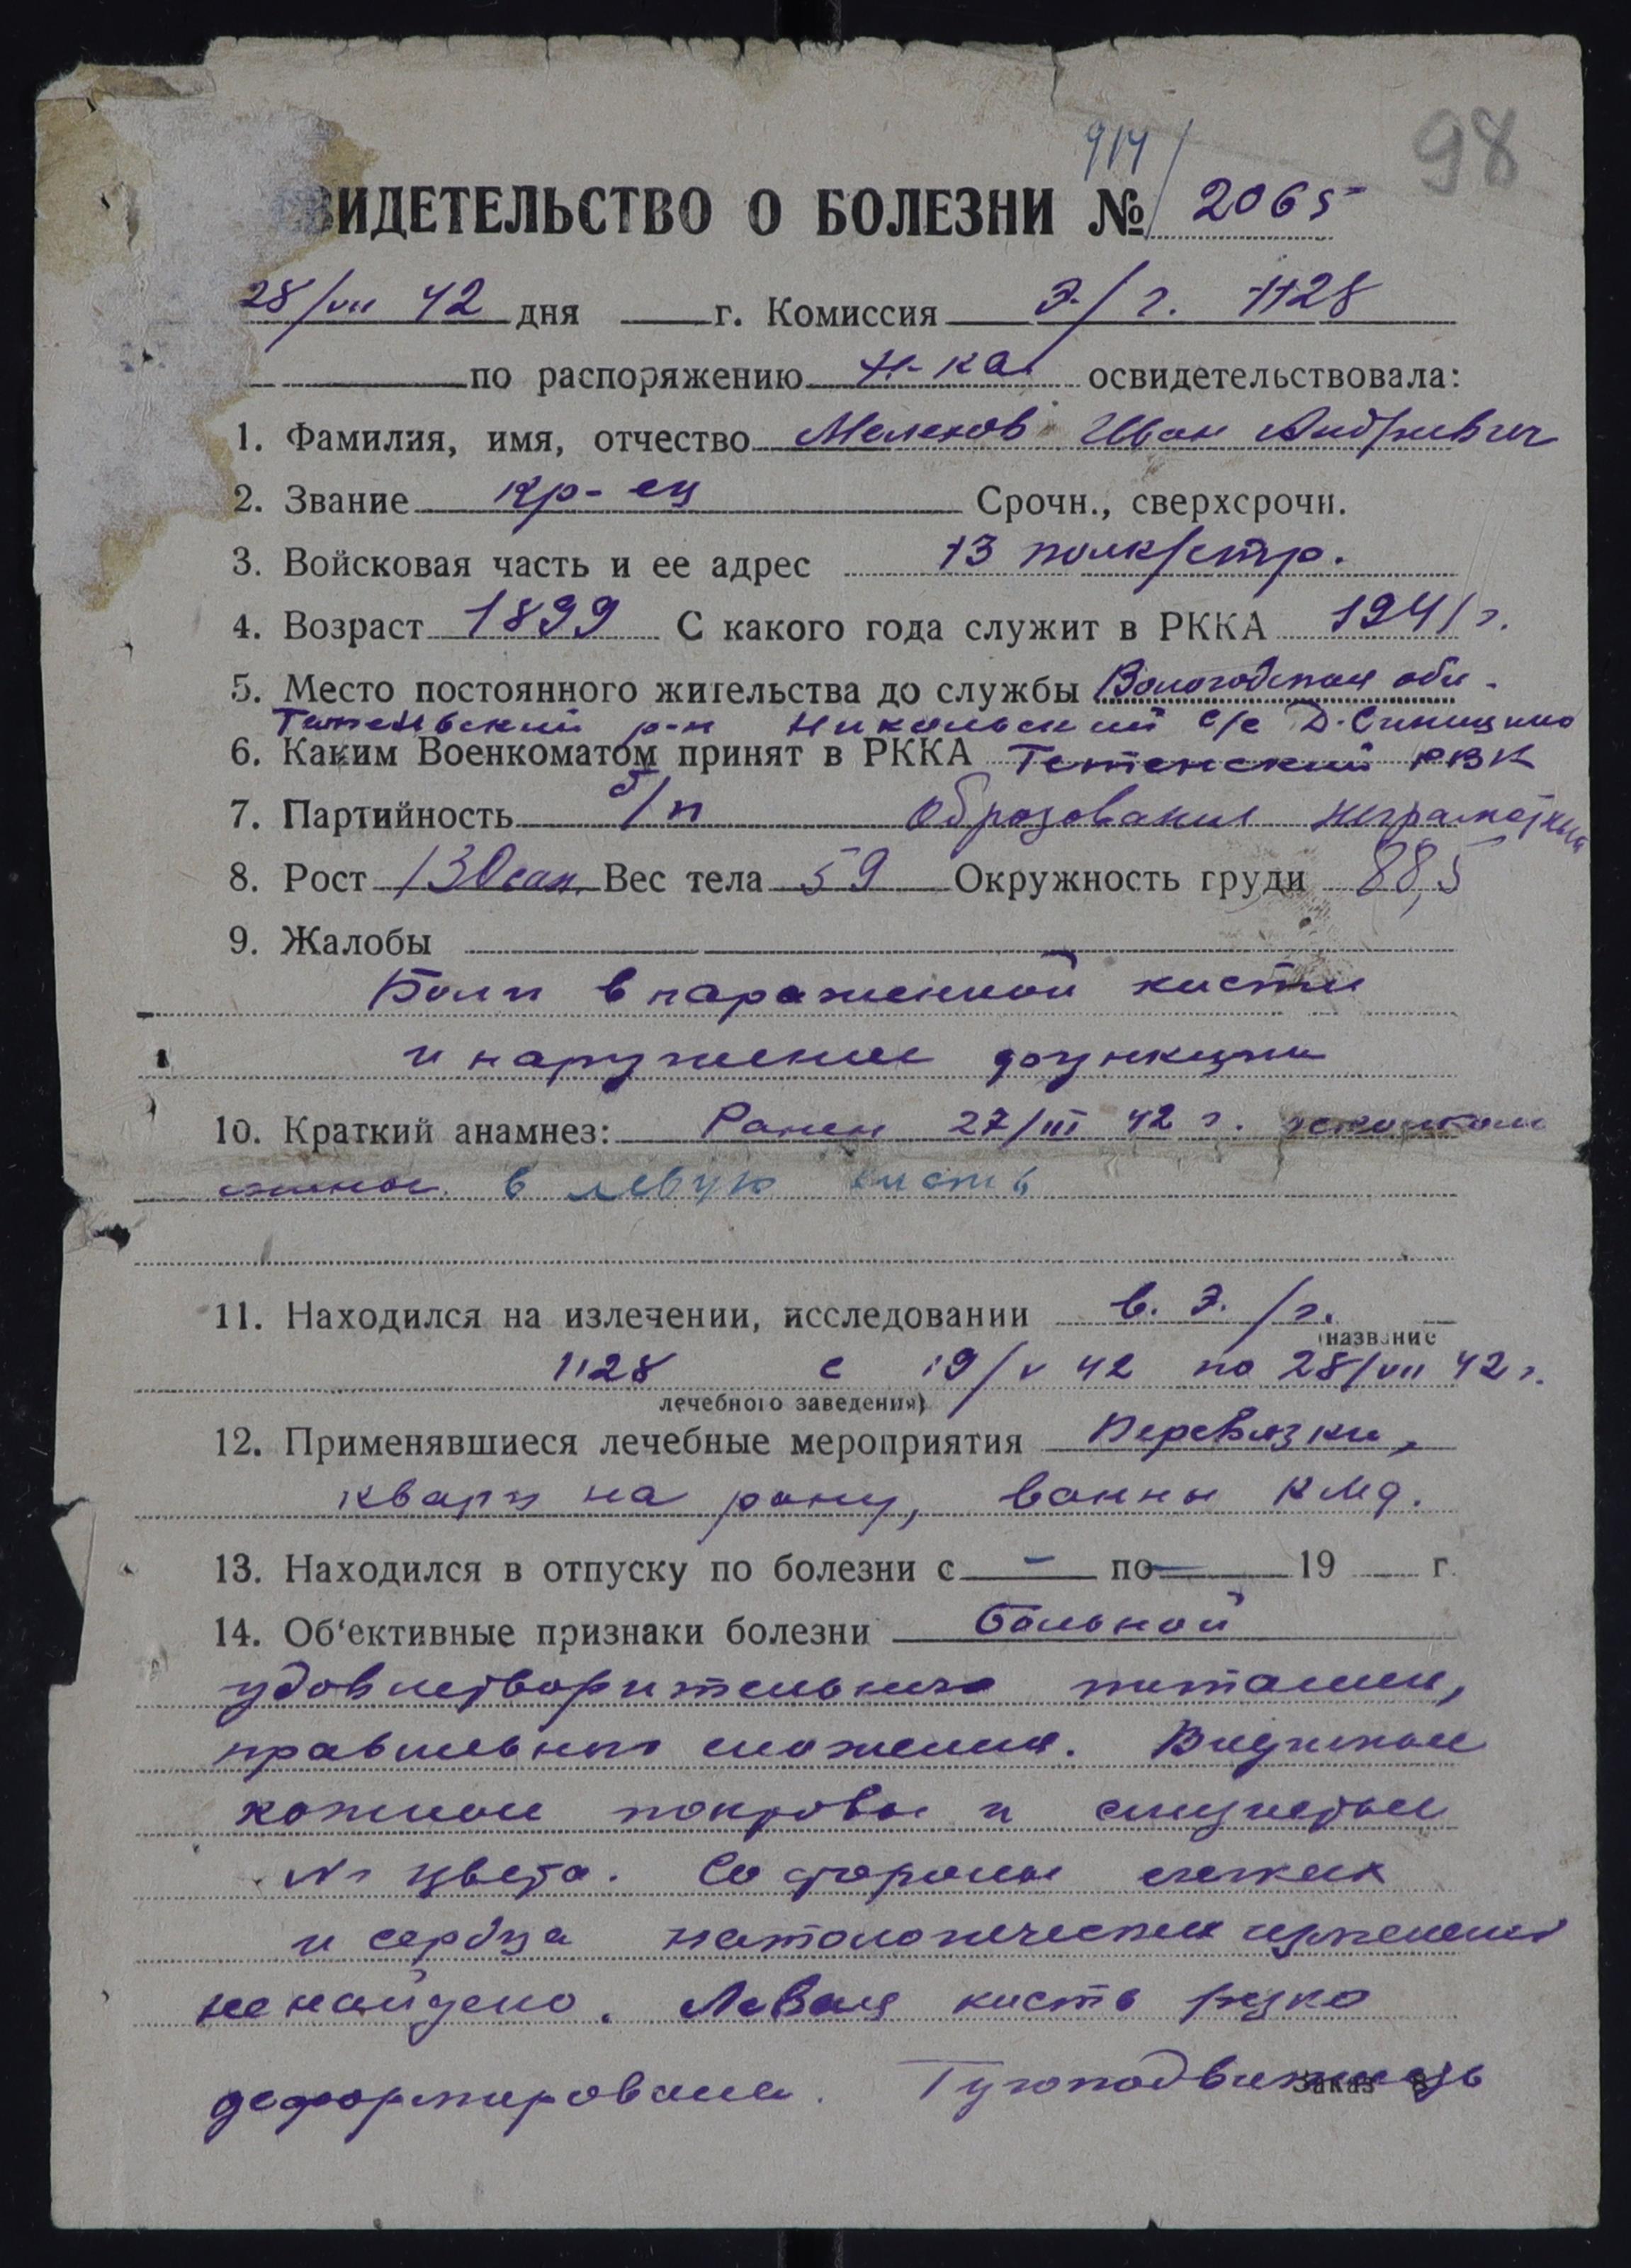 914/
98
ВИДЕТЕЛЬСТВО О БОЛЕЗНИ № 2065
28/VII 42 дня г. Комиссия Э/г. 1128
по распоряжению н-ка освидетельствовала:
1. Фамилия, имя, отчество Меленов Иван Андреевич
2. Звание кр-ец Срочн., сверхсрочн.
3. Войсковая часть и ее адрес 13 полк/стр.
4. Возраст 1899 С какого года служит в РККА 1941 г.
5. Место постоянного жительства до службы Вологодская обл.
Никольский с/с Д. Синицино
6. Каким Военкоматом принят в РККА РВК
7. Партийность б/п образования неграмотный
8. Рост 130 сан. Вес тела 59 Окружность груди 88,5
9. Жалобы
Боли в пораженной кисти
и нарушение функции
10. Краткий анамнез: Ранен 27/III 42 г. осколком
мины в левую кисть
11. Находился на излечении, исследовании в. Э./г.
(название
1128 с 19/V 42 по 28/VII 42 г.
лечебного заведения)
12. Применявшиеся лечебные мероприятия Перевязки,
кварц на рану, ванны
13. Находился в отпуску по болезни с – по – 19 г.
14. Об'ективные признаки болезни Больной
удовлетворительного питания,
правильного сложения. Видимые
кожные покровы и слизистые
N цвета. Со стороны легких
и сердца патологических изменений
не найдено. Левая кисть резко
деформирована. Тугоподвижность
Заказ